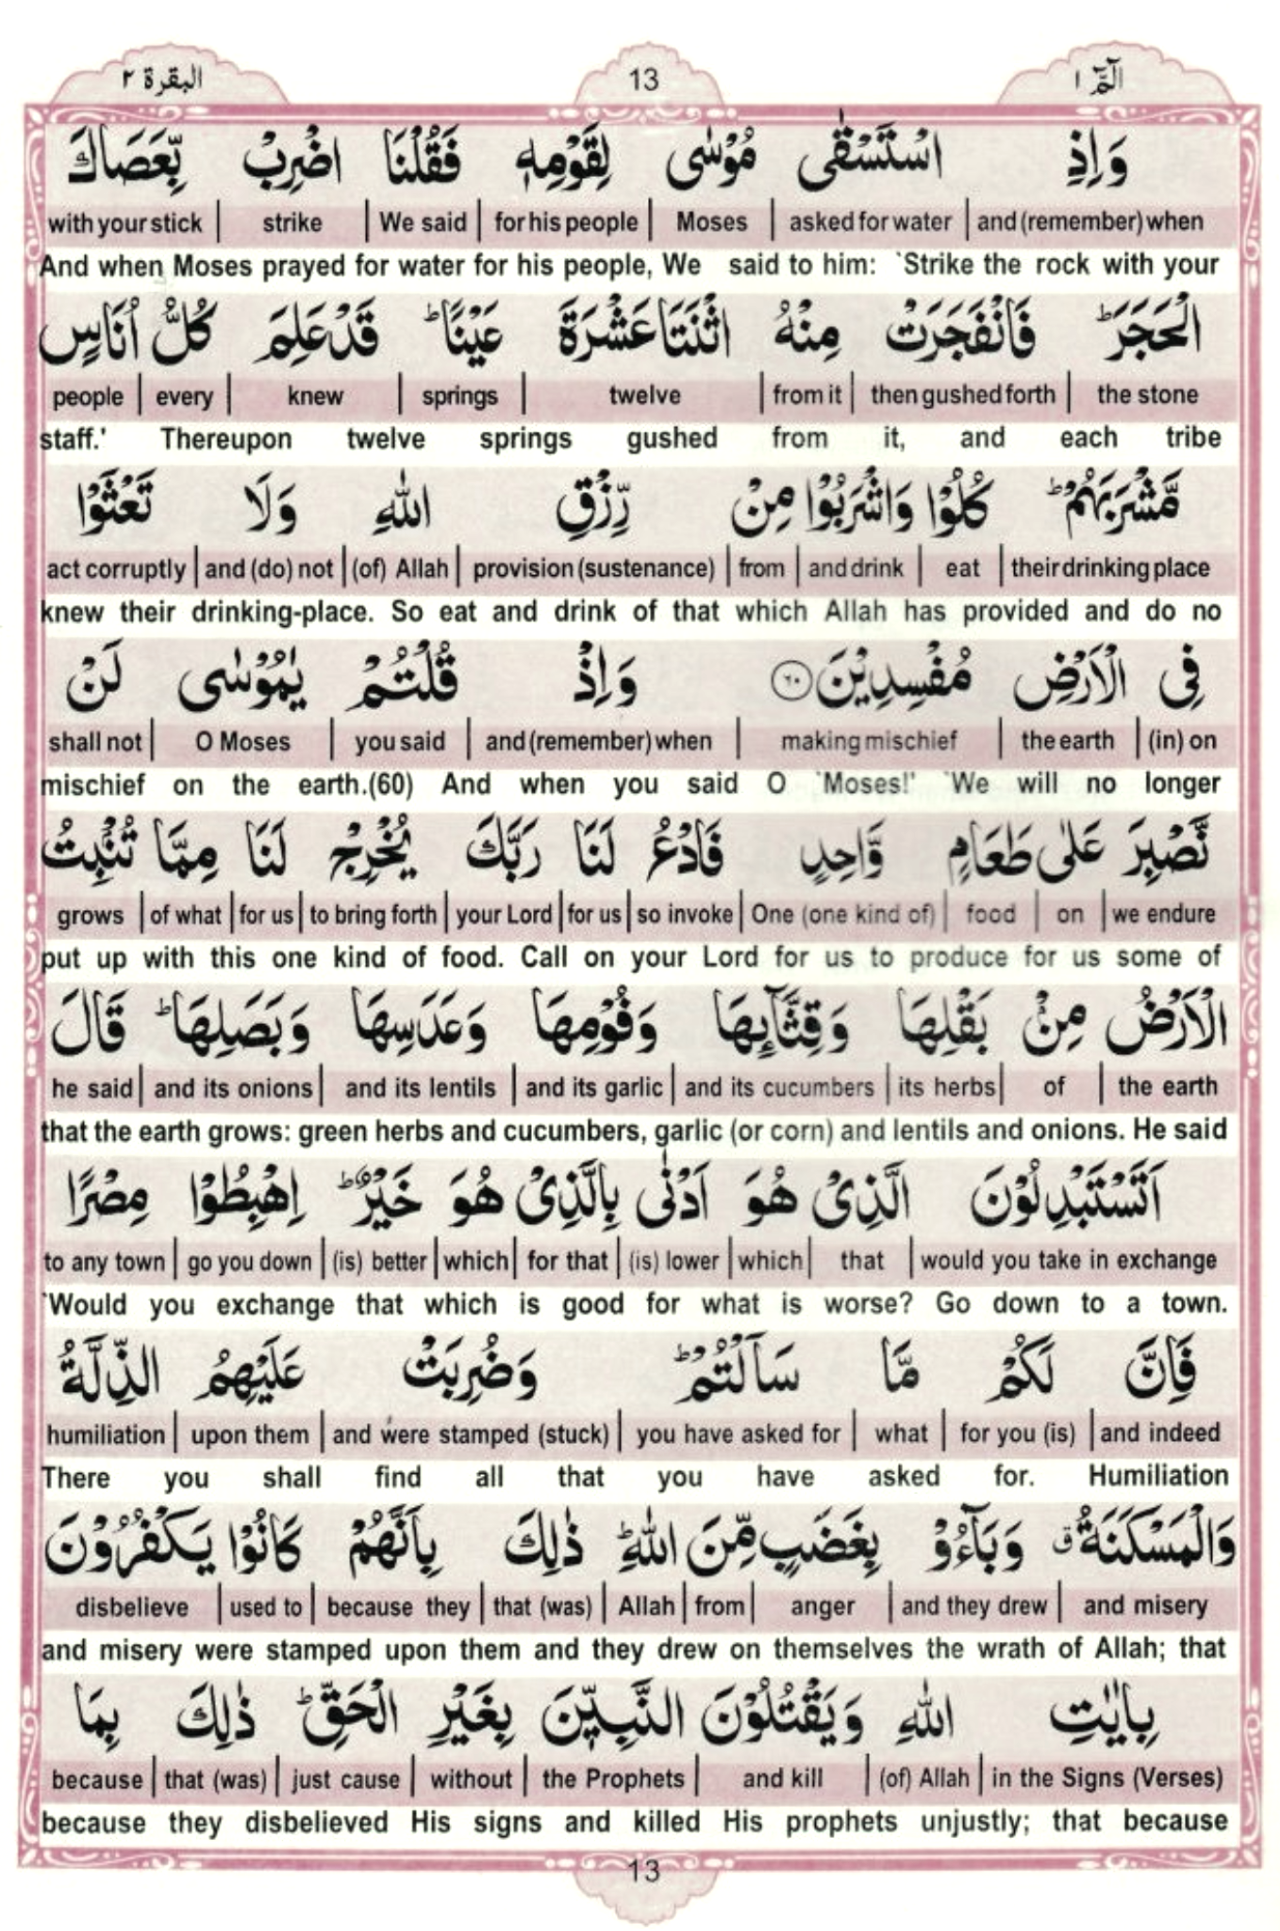 البقرة ٢
13
الٓمّٓ ١
وَاِذِ اسْتَسْقٰى مُوْسٰى لِقَوْمِهٖ فَقُلْنَا اضْرِبْ بِّعَصَاكَ
and (remember) when | asked for water | Moses | for his people | We said | strike | with your stick
And when Moses prayed for water for his people, We said to him: `Strike the rock with your
الْحَجَرَ ؕ فَانْفَجَرَتْ مِنْهُ اثْنَتَا عَشْرَةَ عَيْنًا ؕ قَدْ عَلِمَ كُلُّ اُنَاسٍ
the stone | then gushed forth | from it | twelve | springs | knew | every | people
staff.' Thereupon twelve springs gushed from it, and each tribe
مَّشْرَبَهُمْ ؕ كُلُوْا وَاشْرَبُوْا مِنْ رِّزْقِ اللّٰهِ وَلَا تَعْثَوْا
their drinking place | eat | and drink | from | provision (sustenance) | (of) Allah | and (do) not | act corruptly
knew their drinking-place. So eat and drink of that which Allah has provided and do no
فِى الْاَرْضِ مُفْسِدِيْنَ ۟۶۰ وَاِذْ قُلْتُمْ يٰمُوْسٰى لَنْ
(in) on | the earth | making mischief | and (remember) when | you said | O Moses | shall not
mischief on the earth.(60) And when you said O `Moses!' `We will no longer
نَّصْبِرَ عَلٰى طَعَامٍ وَّاحِدٍ فَادْعُ لَنَا رَبَّكَ يُخْرِجْ لَنَا مِمَّا تُنْۢبِتُ
we endure | on | food | One (one kind of) | so invoke | for us | your Lord | to bring forth | for us | of what | grows
put up with this one kind of food. Call on your Lord for us to produce for us some of
الْاَرْضُ مِنْۢ بَقْلِهَا وَقِثَّآئِهَا وَفُوْمِهَا وَعَدَسِهَا وَبَصَلِهَا ؕ قَالَ
the earth | of | its herbs | and its cucumbers | and its garlic | and its lentils | and its onions | he said
that the earth grows: green herbs and cucumbers, garlic (or corn) and lentils and onions. He said
اَتَسْتَبْدِلُوْنَ الَّذِىْ هُوَ اَدْنٰى بِالَّذِىْ هُوَ خَيْرٌ ؕ اِهْبِطُوْا مِصْرًا
would you take in exchange | that | which | (is) lower | for that | which | (is) better | go you down | to any town
`Would you exchange that which is good for what is worse? Go down to a town.
فَاِنَّ لَكُمْ مَّا سَاَلْتُمْ ؕ وَضُرِبَتْ عَلَيْهِمُ الذِّلَّةُ
and indeed | for you (is) | what | you have asked for | and were stamped (stuck) | upon them | humiliation
There you shall find all that you have asked for. Humiliation
وَالْمَسْكَنَةُ ۗ وَبَآءُوْ بِغَضَبٍ مِّنَ اللّٰهِ ؕ ذٰلِكَ بِاَنَّهُمْ كَانُوْا يَكْفُرُوْنَ
and misery | and they drew | anger | from | Allah | that (was) | because they | used to | disbelieve
and misery were stamped upon them and they drew on themselves the wrath of Allah; that
بِاٰيٰتِ اللّٰهِ وَيَقْتُلُوْنَ النَّبِيّٖنَ بِغَيْرِ الْحَقِّ ؕ ذٰلِكَ بِمَا
in the Signs (Verses) | (of) Allah | and kill | the Prophets | without | just cause | that (was) | because
because they disbelieved His signs and killed His prophets unjustly; that because
13